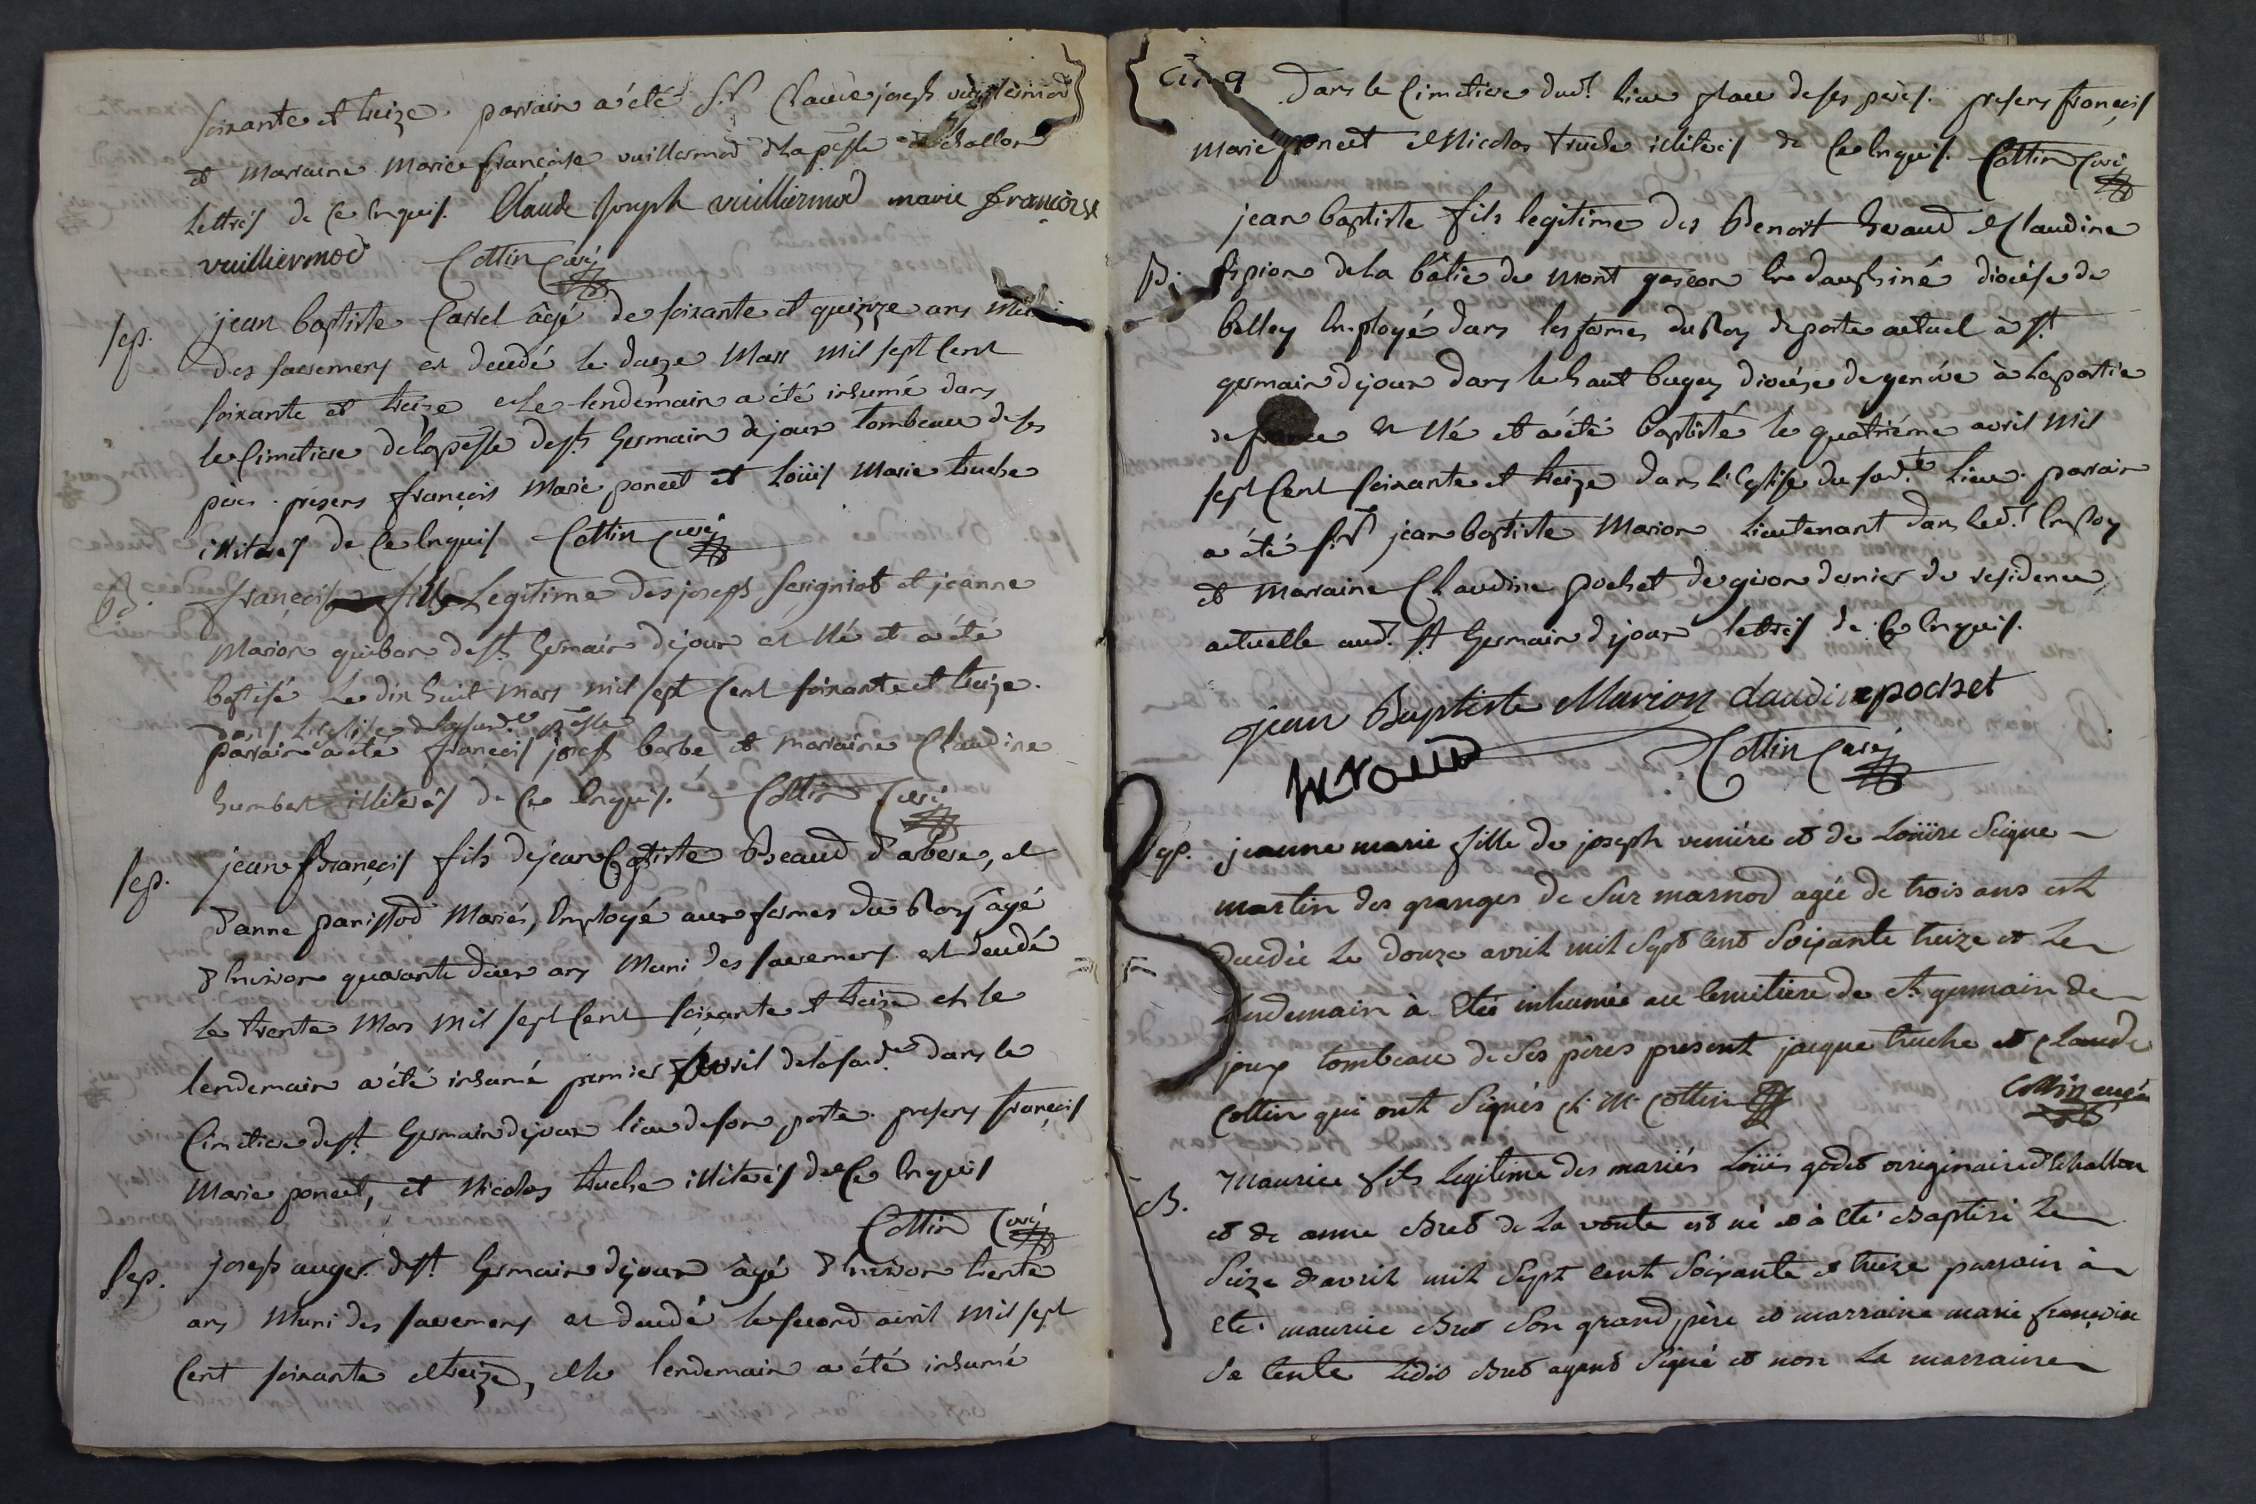 soixante et treize. parrain a été S.r Claude joseph vuilliermod
et marraine Marie françoise vuillermod de la psse d'Echallon
lettrés de ce Enquis. Claude Joseph vuilliermod marie françoise
vuilliermod Cottin Curé
Sep. jean baptiste Cartel âgé de soixante et quinze ans Muni
des sacremens est decedé le Mars Mil sept Cent
soixante et treize et le lendemain a été inhumé dans
le Cimetiere de la psse de St. Germain de joux tombeau de ses
peres. présens françois Marie poncet et Loüis Marie tuche
illiterés de Ce Enquis Cottin Curé
B. françois Legitime des joseph Serigniot et jeanne
Marion de St. Germain de joux est Né et a été
baptisé Le dix huit Mars mil sept Cent soixante et treize.
dans L'Eglise de la susd.e psse
parrain a été françois joseph barbe et marraine Claudine
humbert illiterés de Ce Enquis. Cottin Curé
Sep. jean françois fils de jean Baptiste Beaud d'arbere, et
d'anne parissod Mariés, Employé aux fermes du Roy âgé
d'Environ quarante deux ans Muni des sacremens est decedé
Le trente Mars Mil sept Cent soixante et treize et le
lendemain a été inhumé premier avril de la susd.e dans le
Cimetiere de St. Germain de joux lieu de son poste. presens françois
Marie poncet, et Nicolas tuche illiterés de Ce Enquis
Cottin Curé
Sep. joseph auger de St. Germain de joux âgé d'Environ trente
ans Muni des sacremens est decedé le second avril Mil sept
Cent soixante et treize, et le lendemain a été inhumé
Cinq dans le Cimetiere dud.t lieu place de ses peres. presens françois
Marie poncet et Nicolas truche illiterés de Ce Enquis. Cottin Curé
jean baptiste fils legitime des Benoit heraud et Claudine
B. pion de La bâtie de Mont gascon En dauphiné diocése de
belley Employé dans les fermes du Roy de poste actuel à St.
germain de joux dans le haut bugey diocése de genéve à La partie
de france est Né et a été baptisté le quatriéme avril Mil
sept Cent soixante et treize dans L'Eglise du susd.t Lieu. parrain
a été S.r jean baptiste Marion Lieutenant dans led.t Employ
et marraine Claudine pochet de giron dernier de residence
actuelle aud.t St. Germain de joux lettrés de Ce Enquis.
jean Baptiste Marion claudine pochet
heraud Cottin Curé
Sep. jeanne marie fille de joseph veniére et de Loüise Seigne
martin des granges de sur marnod agée de trois ans est
decedée le douze avril mil sept cent soixante treize et le
lendemain à été inhumée au cemitiere de St. germain de
joux tombeau de ses péres present jacque truche et claude
cottin qui ont signés cl. M. cottin Cottin curé
B. Maurice fils legitime des mariés Loüis godet originaire d'Echallon
et de anne Bret de la voute est né et à été Baptisé le
seize d'avril mil sept cent soixante et treize parrain à
été maurice Bret son grand pére et marraine marie françoise
sa tente ledit Bret ayant signé et non la marraine